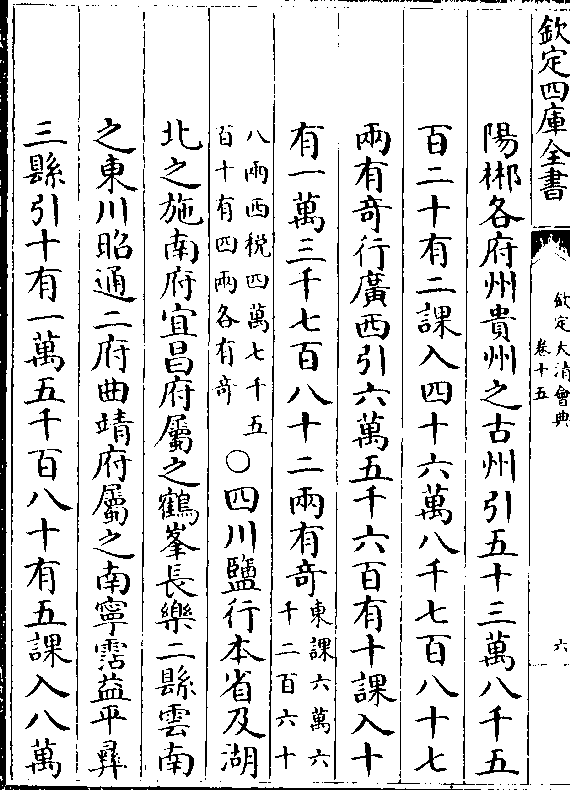 欽定四庫全書
欽定大清會典
卷十五
六
陽郴各府州貴州之古州引五十三萬八千五
百二十有二課入四十六萬八千七百八十七
兩有奇行廣西引六萬五千六百有十課入十
有一萬三千七百八十二兩有奇東課六萬六
千二百六十
八兩西税四萬七千五
百十有四兩各有奇
○四川鹽行本省及湖
北之施南府宜昌府屬之鶴峯長樂二縣雲南
之東川昭通二府曲靖府屬之南寧霑益平彝
三縣引十有一萬五千百八十有五課入八萬